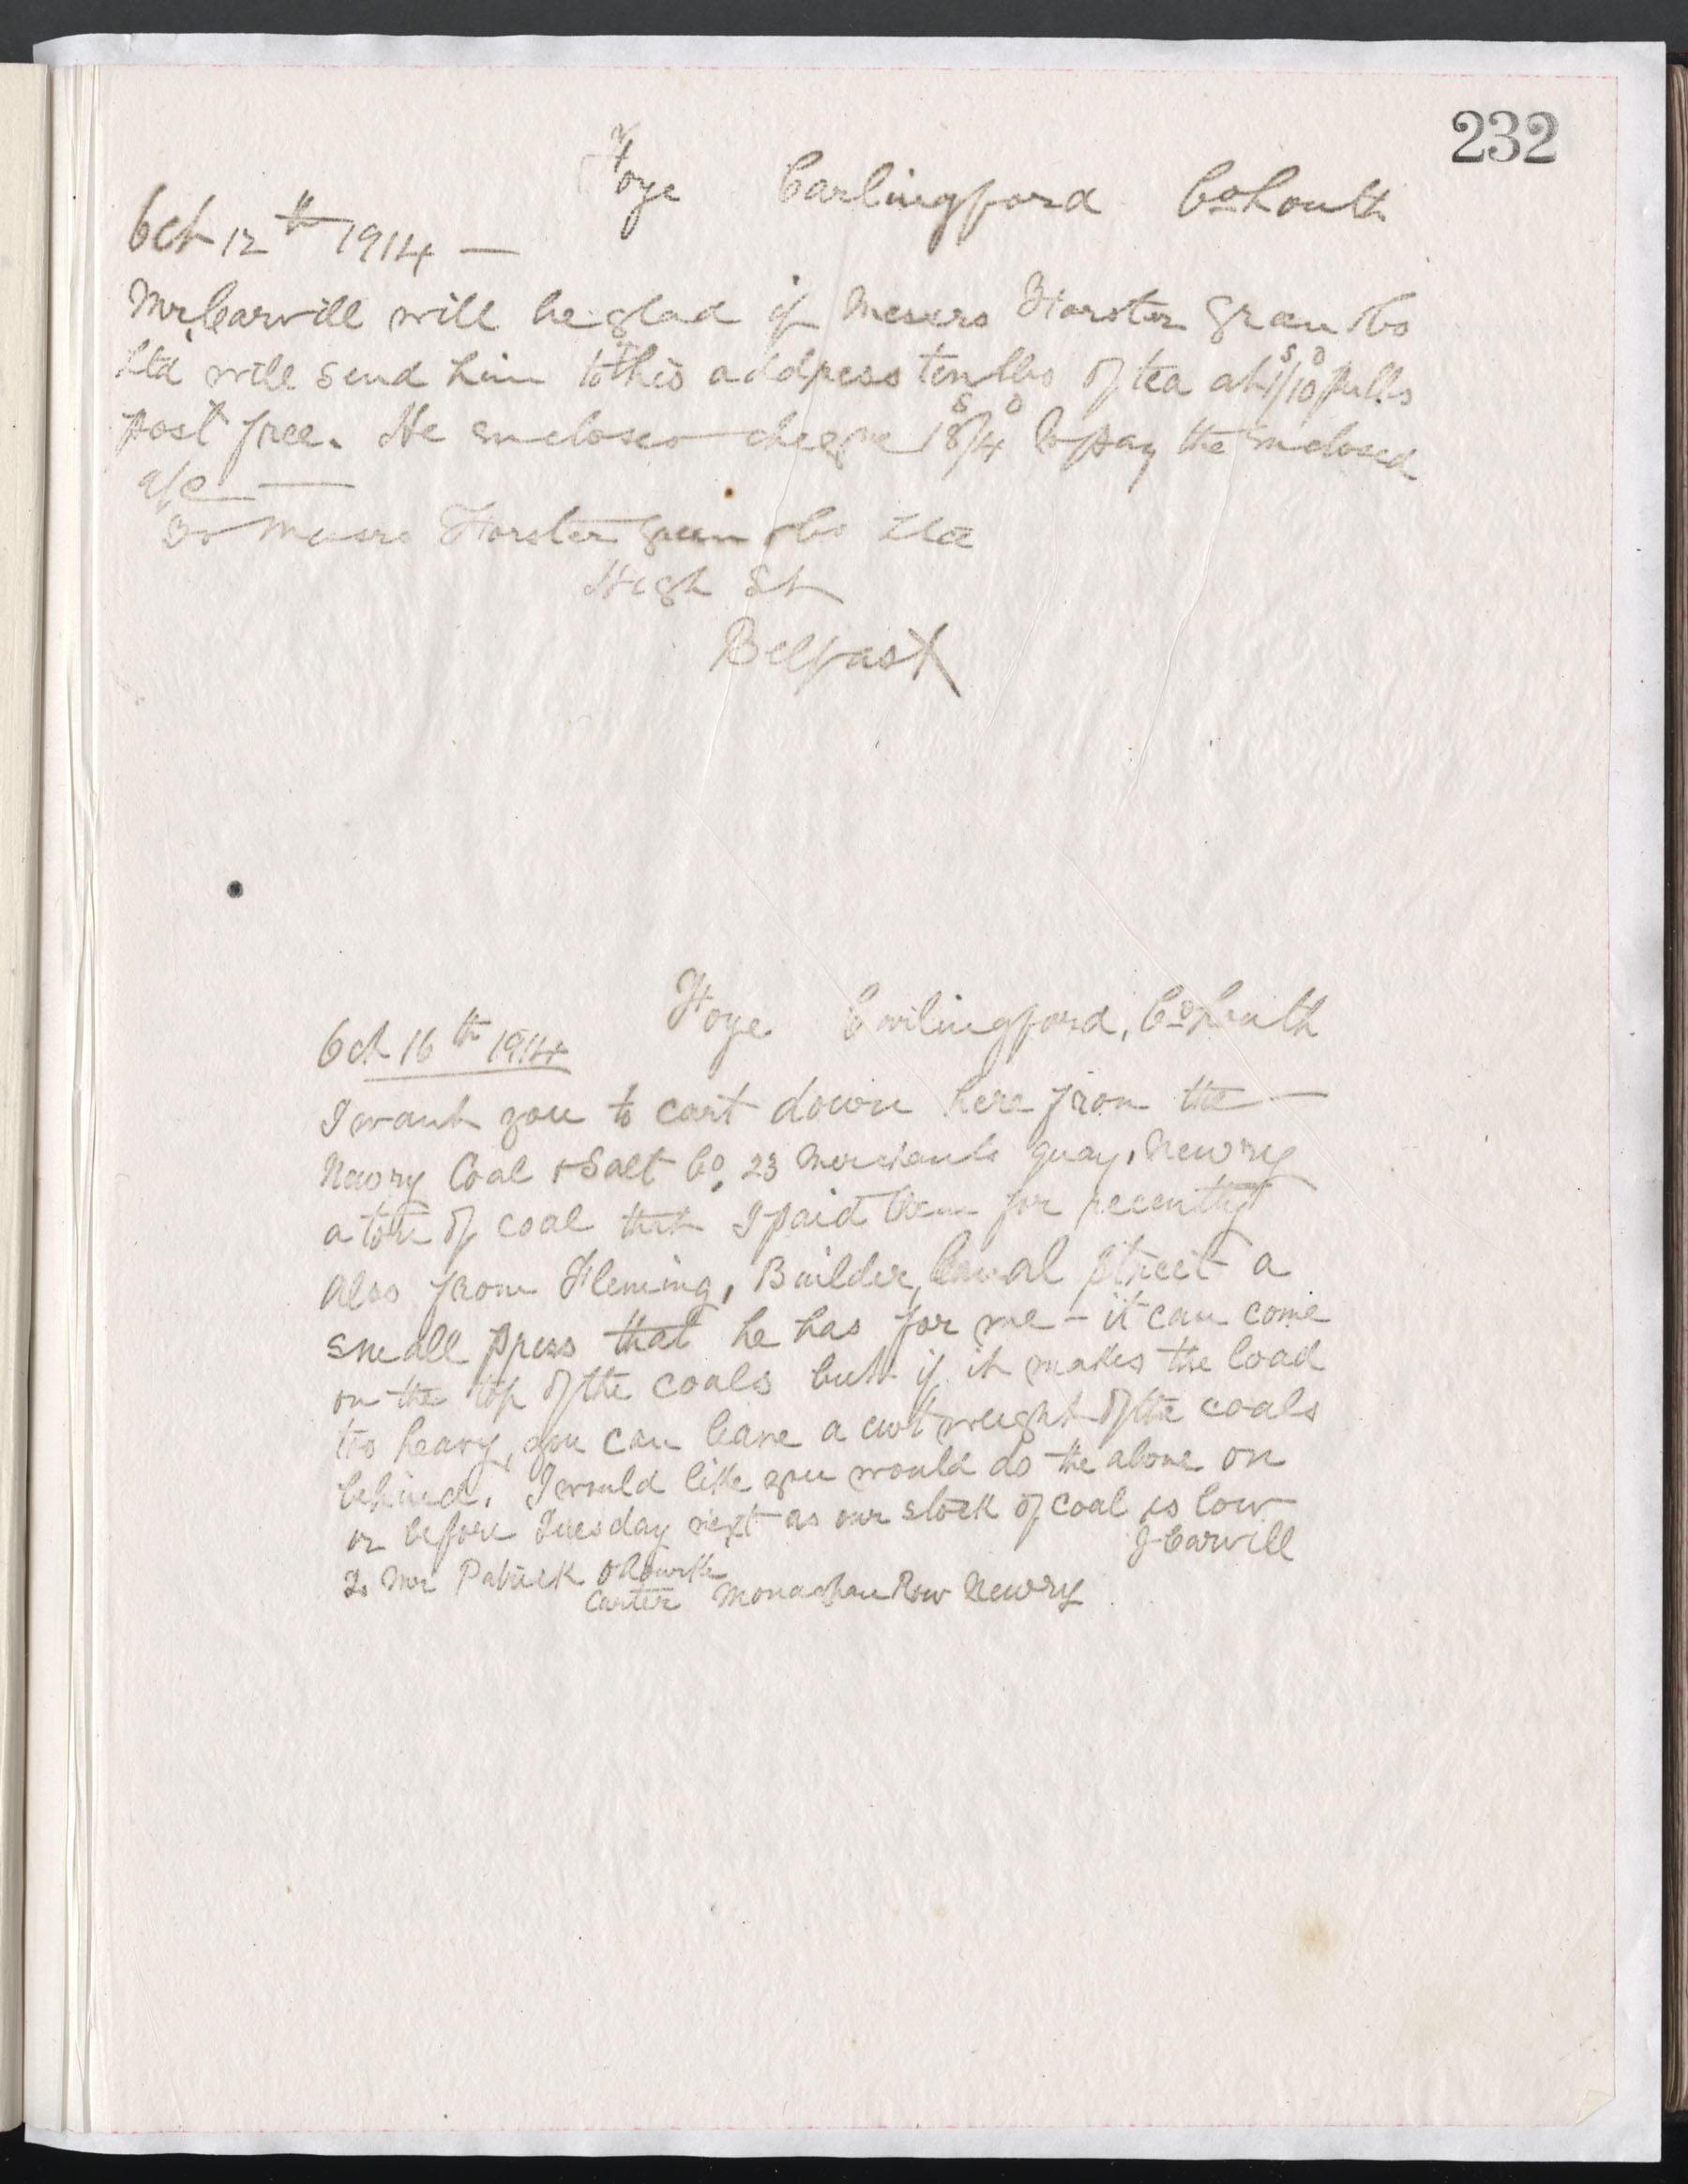 232
Foye Carlingford Co Louth
Oct 12th 1914 —
Mr Carvill will be glad if Messrs Forster Green & Co
Ltd will send him to this address ten lbs of tea at 1s/10d
post free. He encloses cheque 18s/4d to pay the enclosed
a/c —
To Messrs Forster Green & Co Ltd
High St
Belfast
Foye Carlingford, Co Louth
Oct 16th 1914
I want you to cart down here from the —
Newry Coal & Salt Co, 23 Merchants quay, Newry
a ton of coal that I paid them for recently
also from Fleming, Builder, Canal Street a
small press that he has for me - it can come
on the top of the coals but if it makes the load
too heavy, you can leave a cwt weight of the coals
behind. I would like you would do the above on
or before Tuesday next as our stock of coal is low
J Carvill
To Mr Patrick O'Rourke
Carter Monaghan Row Newry